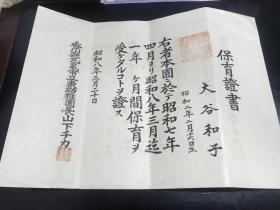 保育證書
大谷和子
昭和二年二月十六日生
右者本園ニ於テ昭和七年
四月ヨリ昭和八年三月迄
一年ヶ月間保育ヲ
受ケタルコトヲ證ス
昭和八年三月二十日
幼稚園長山下千力